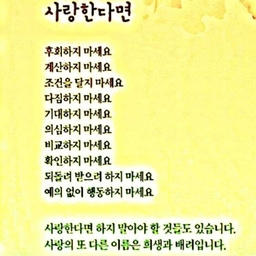 사랑한다면
후회하지 마세요
계산하지 마세요
조건을 달지 마세요
다짐하지 마세요
기대하지 마세요
의심하지 마세요
비교하지 마세요
확인하지 마세요
되돌려 받으려 하지 마세요
예의 없이 행동하지 마세요
사랑한다면 하지 말아야 할 것들도 있습니다.
사랑의 또 다른 이름은 희생과 배려입니다.